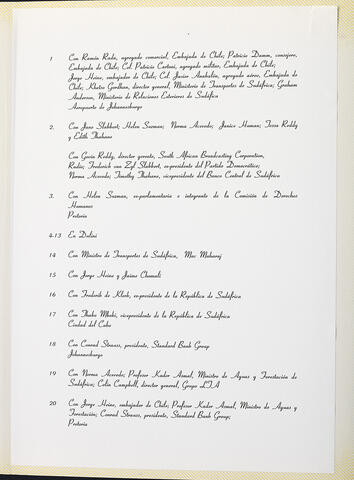 1 Con Ramón Rada, agregado comercial, Embajada de Chile; Patricio Damm, consejero,
Embajada de Chile; Col. Patricio Cartoni, agregado militar, Embajada de Chile;
Jorge Heine, embajador de Chile; Col. Javier Anabalón, agregado aéreo, Embajada de
Chile; Khetso Gordhan, director general, Ministerio de Transportes de Sudáfrica; Graham
Anderson, Ministerio de Relaciones Exteriores de Sudáfica
Aeropuerto de Johannesburgo
2. Con Jane Slabbert; Helen Suzman; Norma Acevedo; Janice Human; Tessa Reddy
y Edith Thahane
Con Govin Reddy, director gerente, South African Broadcasting Corporation,
Radio; Frederick van Zyl Slabbert, ex-presidente del Partido Democrático;
Norma Acevedo; Timothy Thahane, vicepresidente del Banco Central de Sudáfrica
3. Con Helen Suzman, ex-parlamentaria e integrante de la Comisión de Derechos
Humanos
Pretoria
4-13 En Dolini
14 Con Ministro de Transportes de Sudáfrica, Mac Maharaj
15 Con Jorge Heine y Jaime Chomalí
16 Con Frederik de Klerk, ex-presidente de la República de Sudáfrica
17 Con Thabo Mbeki, vicepresidente de la República de Sudáfrica
Ciudad del Cabo
18 Con Conrad Strauss, presidente, Standard Bank Group
Johannesburgo
19 Con Norma Acevedo; Profesor Kader Asmal, Ministro de Aguas y Forestación de
Sudáfrica; Colin Campbell, director general, Grupo LTA
20 Con Jorge Heine, embajador de Chile; Profesor Kader Asmal, Ministro de Aguas y
Forestación; Conrad Strauss, presidente, Standard Bank Group;
Pretoria